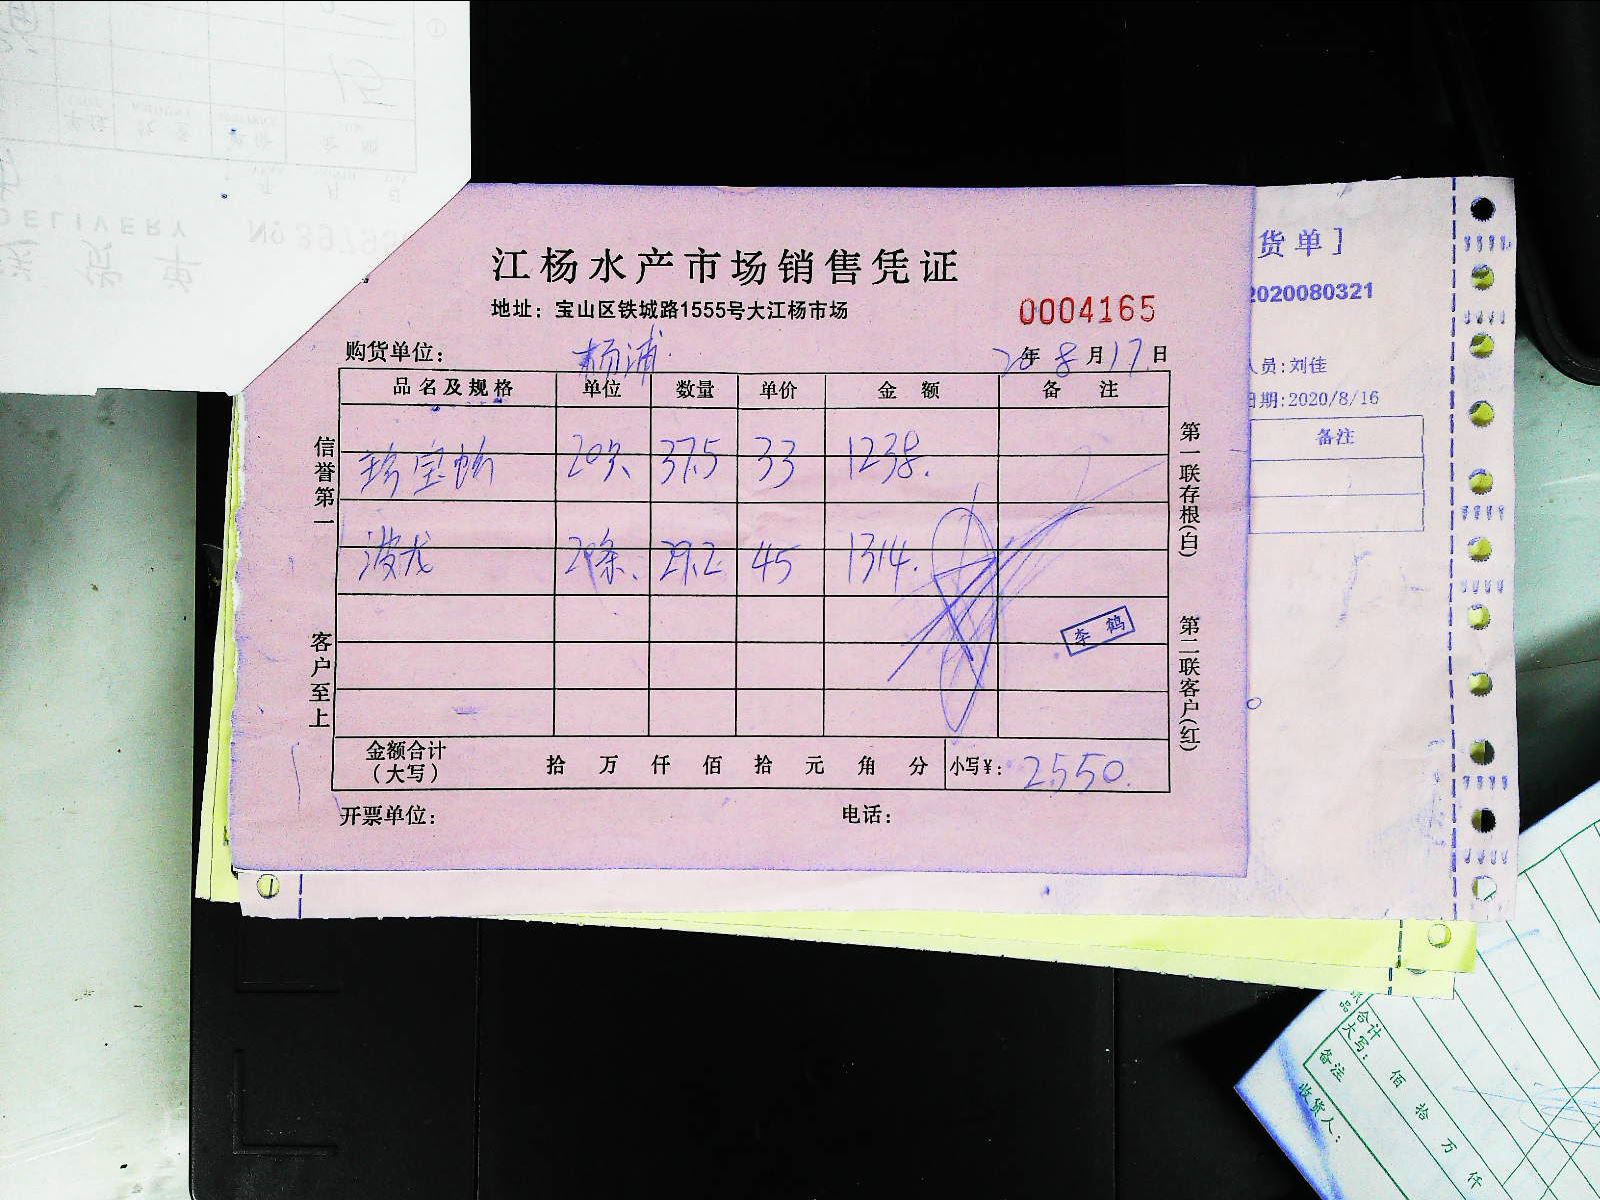 江杨水产市场销售凭证
地址：宝山区铁城路1555号大江杨市场
0004165
购货单位：杨浦
20年8月17日
品名及规格 单位 数量 单价 金额 备注
珍宝蚧 20只 37.5 33 1238.
波龙 20条、 29.2 45 1314.
李鹤
金额合计（大写） 拾 万 仟 佰 拾 元 角 分 小写¥：2550.
开票单位： 电话：
信誉第一
客户至上
第一联存根(白)
第二联客户(红)
货单]
2020080321
人员:刘佳
日期:2020/8/16
备注
DELIVERY
合计
大写：
佰 拾 万 仟
备注
收货人：